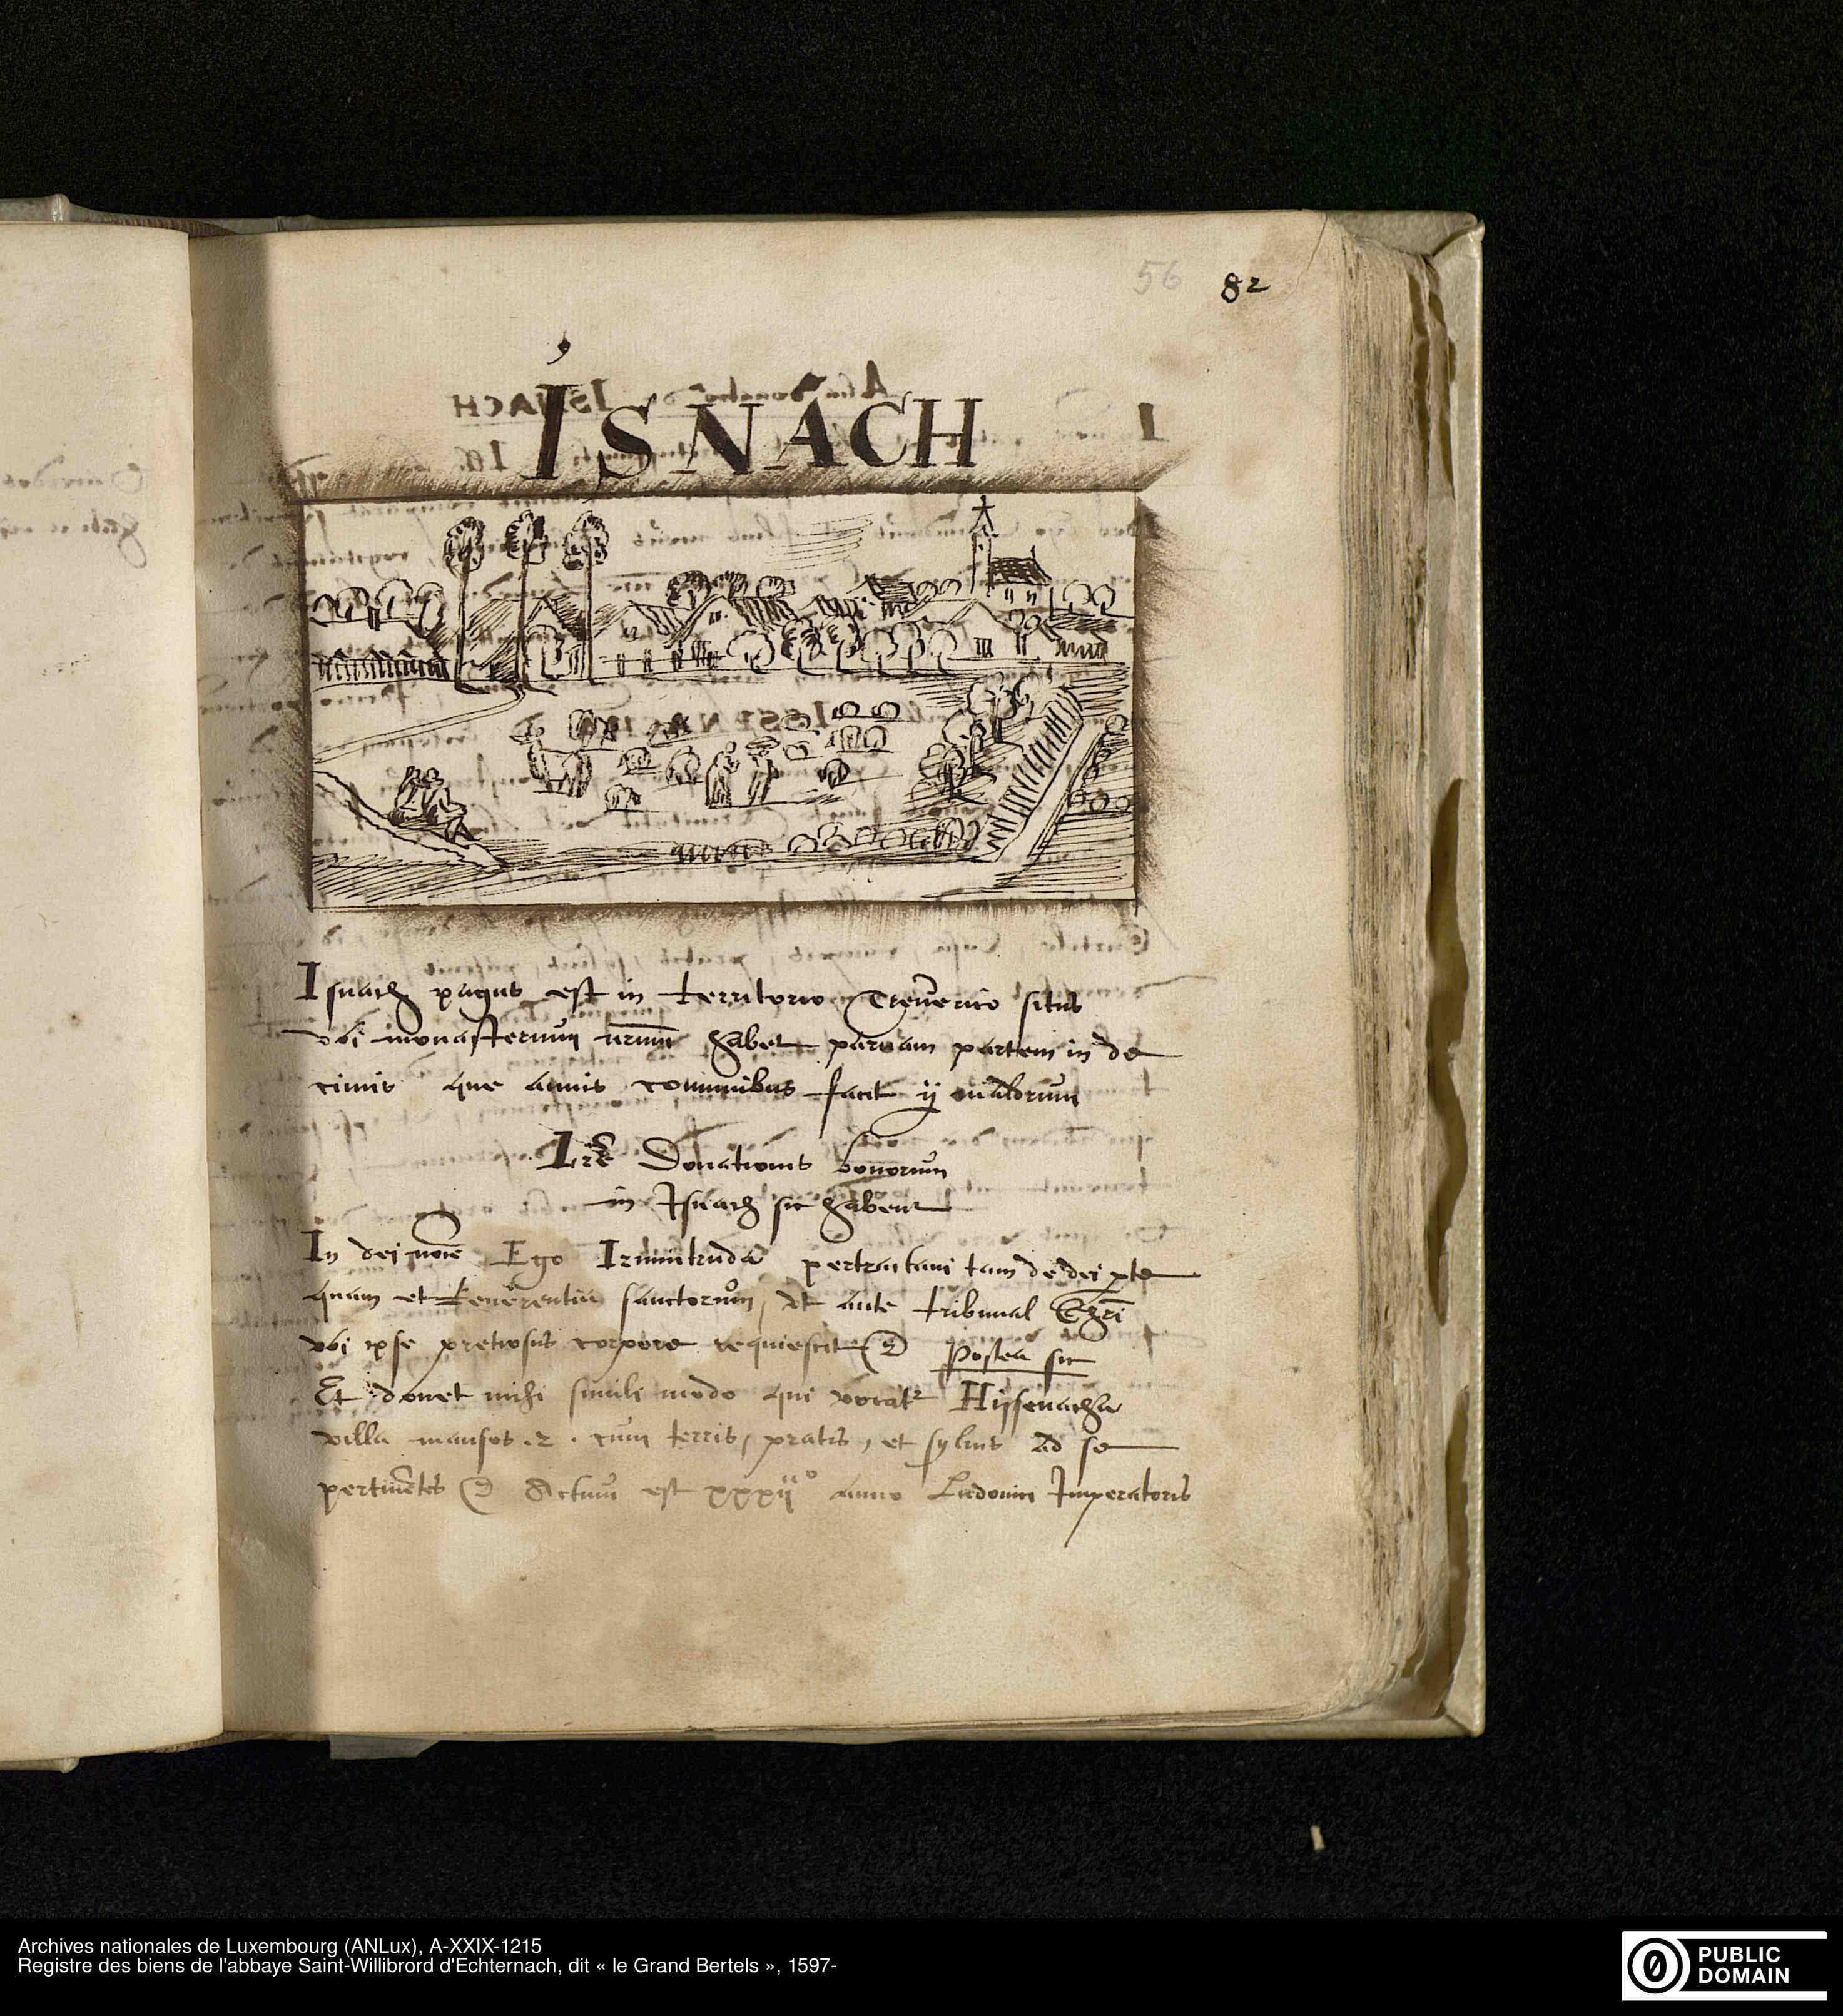 56 82
ISNACH
Isnach pagus est in territorio Treuerico situs
vbi monasterium nrum habet paruam partem in de
cimis que annis communibus facit ij maldorum
Lrē Donationis bonorum
in Isnach sic habent
In dei noīe Ego Irmintruda pertractaui tam de dei pte
quam et Reuerentia sanctorum, et ante tribunal
vbi ipse pretiosus corpore requiescit Postea sic
Et donet mihi simili modo qui vocatr Hijsenacha
villa mansos .2. cum terris, pratis, et syluis ad se
pertinētes Actum est xxxijº anno Ludouici Imperatoris
Archives nationales de Luxembourg (ANLux), A-XXIX-1215
Registre des biens de l'abbaye Saint-Willibrord d'Echternach, dit « le Grand Bertels », 1597-
PUBLIC
DOMAIN